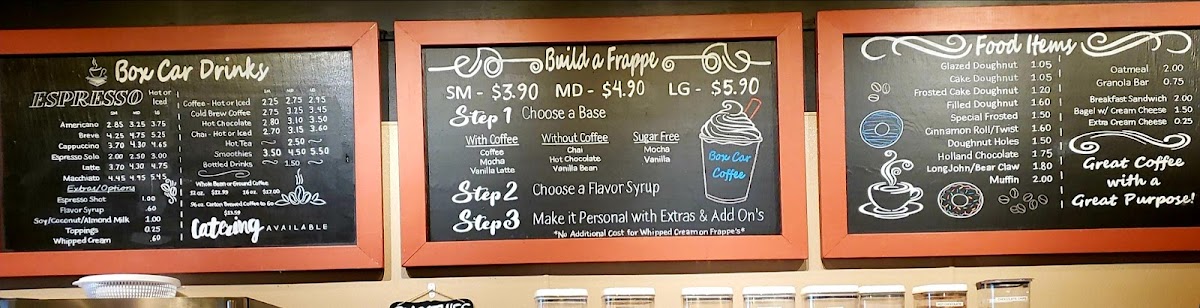 Box Car Drinks
ESPRESSO Hot or Iced
SM MD LG
Americano 2.85 3.25 3.75
Breve 4.25 4.75 5.25
Cappuccino 3.70 4.30 4.65
Espresso Solo 2.00 2.50 3.00
Latte 3.70 4.30 4.75
Macchiato 4.45 4.95 5.45
Extras/Options
Espresso Shot 1.00
Flavor Syrup .60
Soy/Coconut/Almond Milk 1.00
Toppings 0.25
Whipped Cream .60
SM MD LG
Coffee - Hot or Iced 2.25 2.75 2.95
Cold Brew Coffee 2.75 3.25 3.95
Hot Chocolate 2.80 3.10 3.50
Chai - Hot or Iced 2.70 3.15 3.60
Hot Tea 2.50
Smoothies 3.50 4.50 5.50
Bottled Drinks 1.50
Whole Bean or Ground Coffee
12 oz. 16 oz. $17.00
96 oz. Carton Brewed Coffee to Go
Catering AVAILABLE
Build a Frappe
SM - $3.90 MD - $4.90 LG - $5.90
Step 1 Choose a Base
With Coffee
Coffee
Mocha
Vanilla Latte
Without Coffee
Chai
Hot Chocolate
Vanilla Bean
Sugar Free
Mocha
Vanilla
Box Car
Coffee
Step 2 Choose a Flavor Syrup
Step 3 Make it Personal with Extras & Add On's
*No Additional Cost for Whipped Cream on Frappe's*
Food Items
Glazed Doughnut 1.05
Cake Doughnut 1.05
Frosted Cake Doughnut 1.20
Filled Doughnut 1.60
Special Frosted 1.50
Cinnamon Roll/Twist 1.60
Doughnut Holes 1.50
Holland Chocolate 1.75
LongJohn/Bear Claw 1.80
Muffin 2.00
Oatmeal 2.00
Granola Bar 0.75
Breakfast Sandwich 2.00
Bagel w/ Cream Cheese 1.50
Extra Cream Cheese 0.25
Great Coffee
with a
Great Purpose!